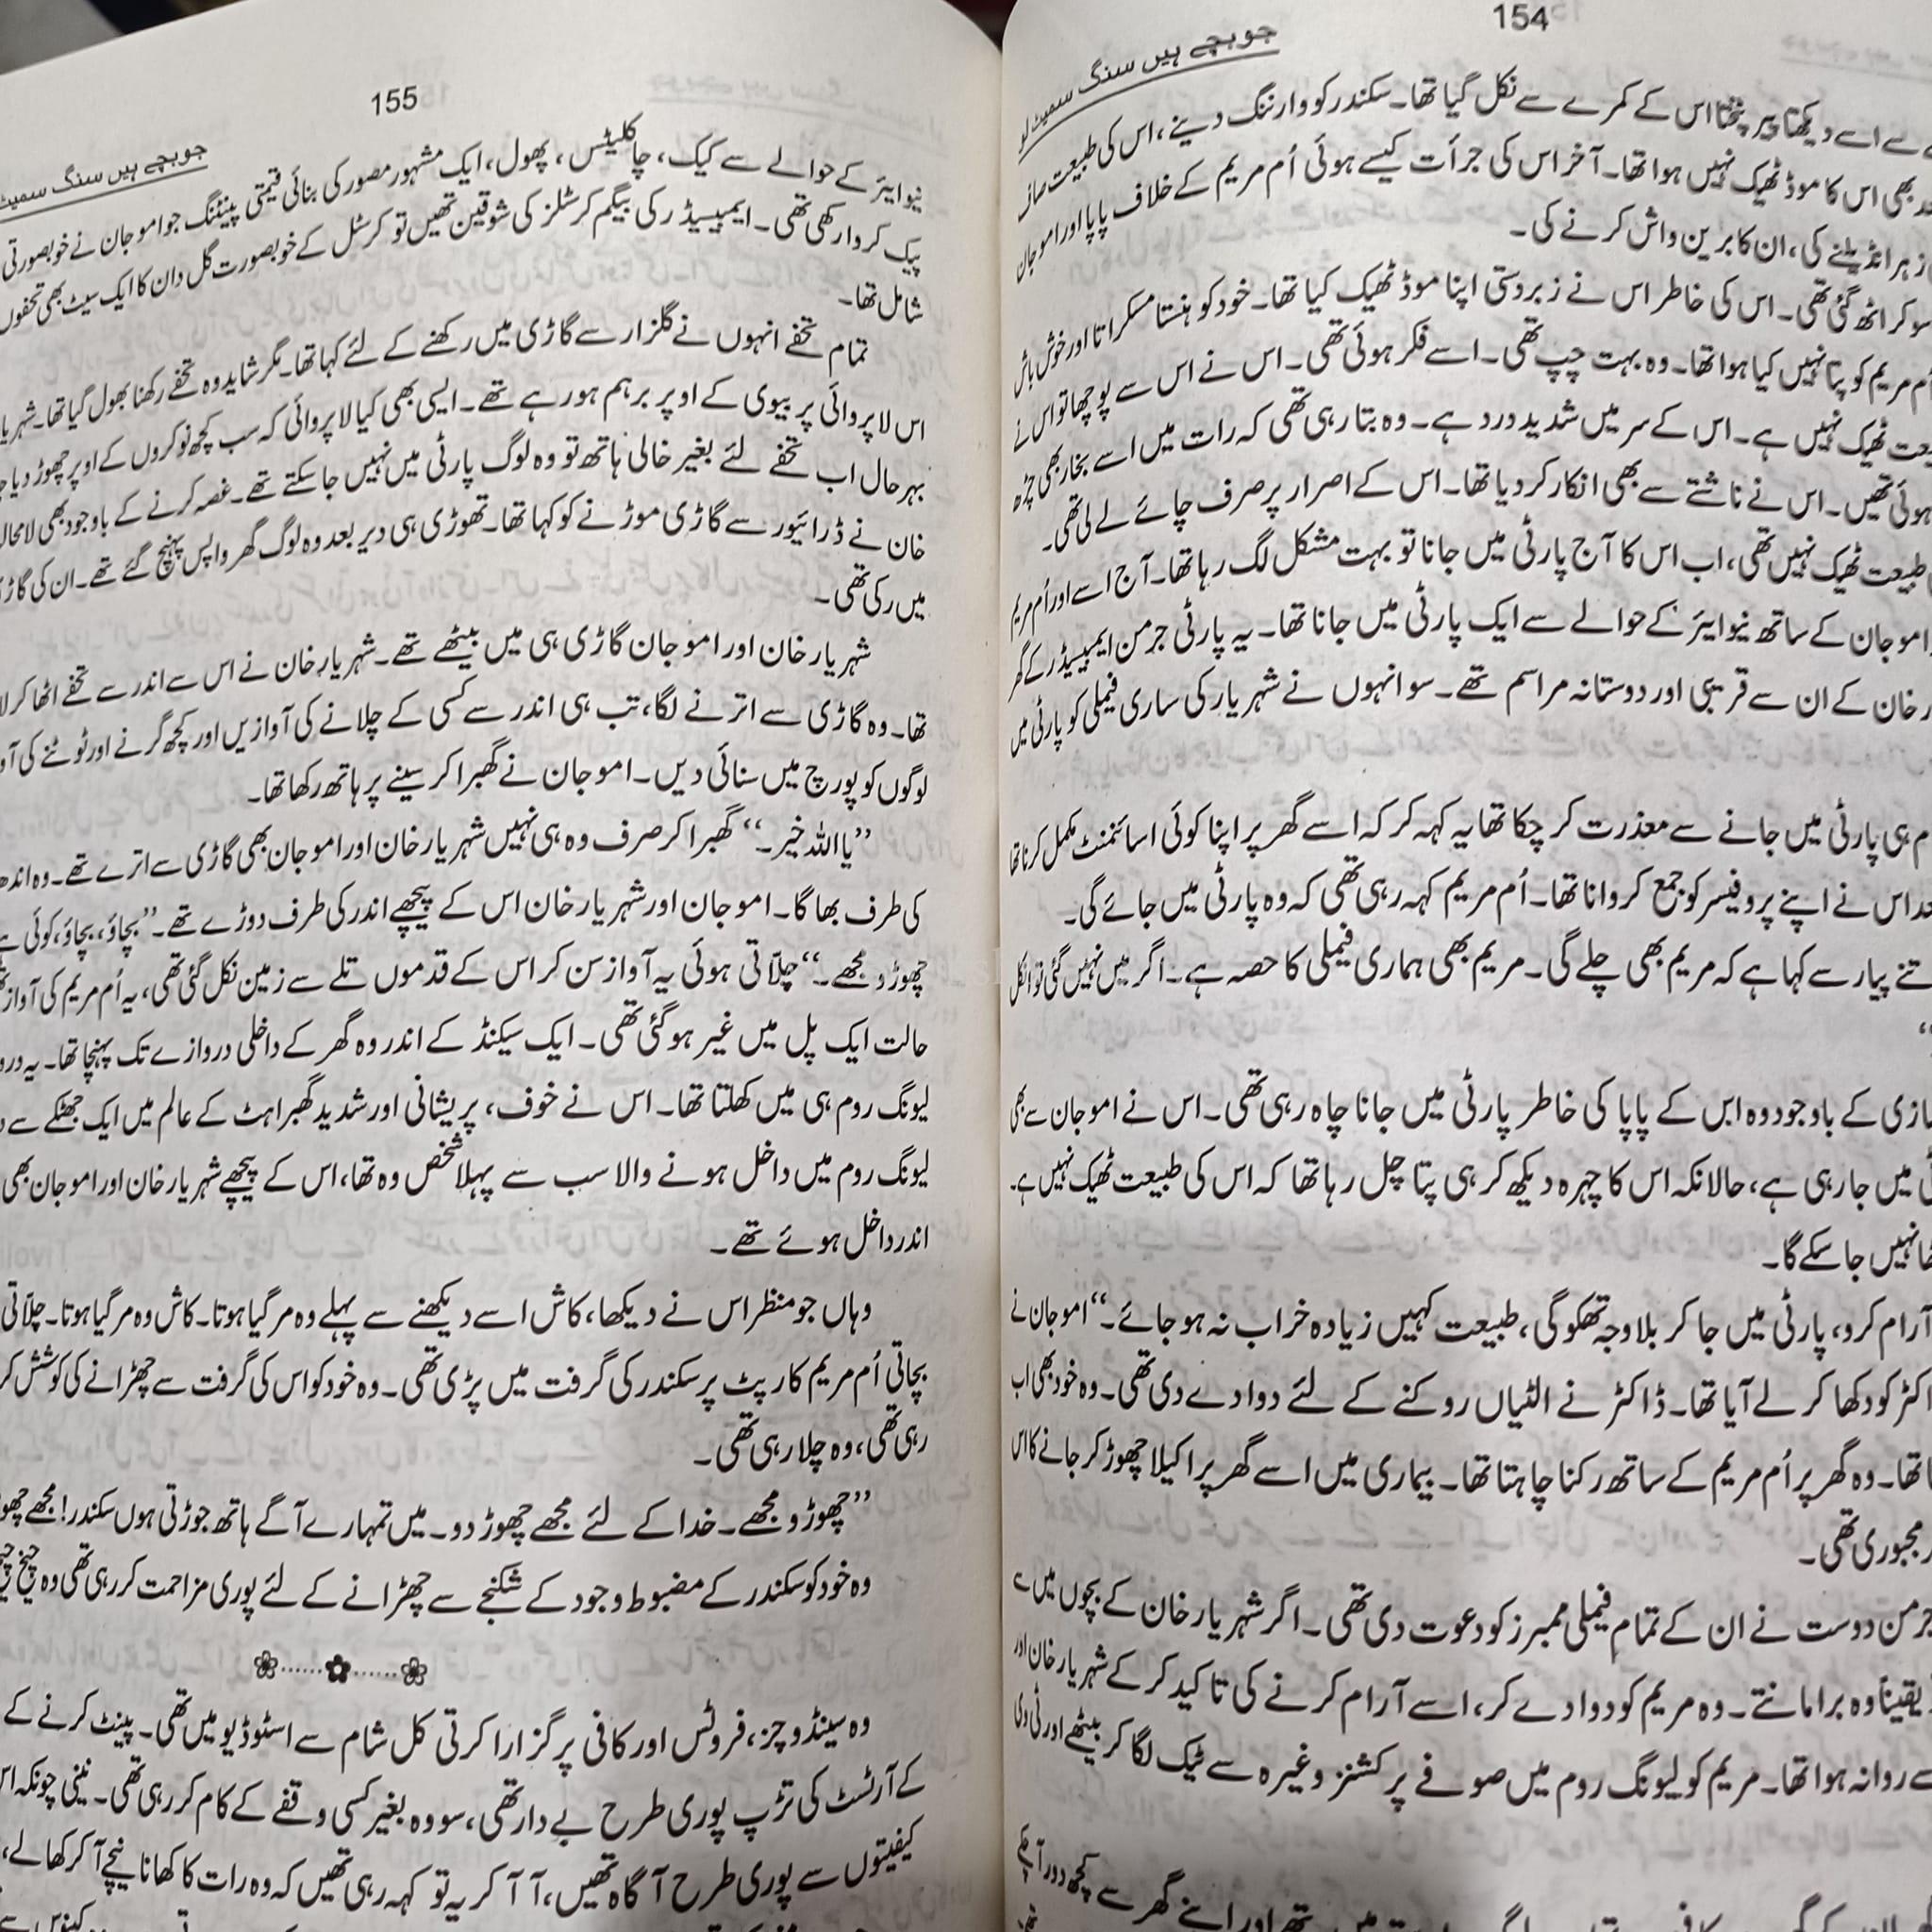 154
جو بچے ہیں سنگ سمیٹ لو
سے اسے دیکھتا پیر پٹختا اس کے کمرے سے نکل گیا تھا۔ سکندر کو وارننگ دینے، اس کی طبیعت صاف
بھی اس کا موڈ ٹھیک نہیں ہوا تھا۔ آخر اس کی جرأت کیسے ہوئی اُم مریم کے خلاف پاپا اور اموجان
زہر انڈیلنے کی، ان کا برین واش کرنے کی۔
سو کر اٹھ گئی تھی۔ اس کی خاطر اس نے زبردستی اپنا موڈ ٹھیک کیا تھا۔ خود کو ہنستا مسکراتا اور خوش باش
اُم مریم کو پتا نہیں کیا ہوا تھا۔ وہ بہت چپ تھی۔ اسے فکر ہوئی تھی۔ اس نے اس سے پوچھا تو اس نے
ٹھیک نہیں ہے۔ اس کے سر میں شدید درد ہے۔ وہ بتا رہی تھی کہ رات میں اسے بخار بھی چڑھ
ہوئی تھیں۔ اس نے ناشتے سے بھی انکار کر دیا تھا۔ اس کے اصرار پر صرف چائے لے لی تھی۔
طبیعت ٹھیک نہیں تھی، اب اس کا آج پارٹی میں جانا تو بہت مشکل لگ رہا تھا۔ آج اسے اور اُم مریم
اموجان کے ساتھ نیو ایئر کے حوالے سے ایک پارٹی میں جانا تھا۔ یہ پارٹی جرمن ایمبیسیڈر کے گھر
خان کے ان سے قریبی اور دوستانہ مراسم تھے۔ سو انہوں نے شہریار کی ساری فیملی کو پارٹی میں
ہی پارٹی میں جانے سے معذرت کر چکا تھا یہ کہہ کر کہ اسے گھر پر اپنا کوئی اسائنمنٹ مکمل کرنا تھا
اس نے اپنے پروفیسر کو جمع کروانا تھا۔ اُم مریم کہہ رہی تھی کہ وہ پارٹی میں جائے گی۔
پیار سے کہا ہے کہ مریم بھی چلے گی۔ مریم بھی ہماری فیملی کا حصہ ہے۔ اگر میں نہیں گئی تو انکل
“
کے باوجود وہ اس کے پاپا کی خاطر پارٹی میں جانا چاہ رہی تھی۔ اس نے اموجان سے بھی
میں جا رہی ہے، حالانکہ اس کا چہرہ دیکھ کر ہی پتا چل رہا تھا کہ اس کی طبیعت ٹھیک نہیں ہے۔
نہیں جا سکے گا۔
آرام کرو، پارٹی میں جا کر بلاوجہ تھکو گی، طبیعت کہیں زیادہ خراب نہ ہو جائے۔“ اموجان نے
کو دکھا کر لے آیا تھا۔ ڈاکٹر نے الٹیاں روکنے کے لئے دوا دے دی تھی۔ وہ خود بھی اب
تھا۔ وہ گھر پر اُم مریم کے ساتھ رکنا چاہتا تھا۔ بیماری میں اسے گھر پر اکیلا چھوڑ کر جانے کا اس
مجبوری تھی۔
جرمن دوست نے ان کے تمام فیملی ممبرز کو دعوت دی تھی۔ اگر شہریار خان کے بچوں میں سے
یقیناً وہ برا مانتے۔ وہ مریم کو دوا دے کر، اسے آرام کرنے کی تاکید کر کے شہریار خان اور
روانہ ہوا تھا۔ مریم کو لیونگ روم میں صوفے پر کشنز وغیرہ سے ٹیک لگا کر بیٹھے اور ٹی وی
اور اپنے گھر سے کچھ دور آچکے
155
جو بچے ہیں سنگ سمیٹ
نیو ایئر کے حوالے سے کیک، چاکلیٹس، پھول، ایک مشہور مصور کی بنائی قیمتی پینٹنگ جو اموجان نے خوبصورتی
پیک کروا رکھی تھی۔ ایمبیسیڈر کی بیگم کرسٹلز کی شوقین تھیں تو کرسٹل کے خوبصورت گل دان کا ایک سیٹ بھی تحفوں
شامل تھا۔
تمام تحفے انہوں نے گلزار سے گاڑی میں رکھنے کے لئے کہا تھا۔ مگر شاید وہ تحفے رکھنا بھول گیا تھا۔
اس لاپروائی پر بیوی کے اوپر برہم ہو رہے تھے۔ ایسی بھی کیا لاپروائی کہ سب کچھ نوکروں کے اوپر چھوڑ دیا
بہرحال اب تحفے لئے بغیر خالی ہاتھ تو وہ لوگ پارٹی میں نہیں جا سکتے تھے۔ غصہ کرنے کے باوجود بھی
خان نے ڈرائیور سے گاڑی موڑنے کو کہا تھا۔ تھوڑی ہی دیر بعد وہ لوگ گھر واپس پہنچ گئے تھے۔ ان کی
میں رکی تھی۔
شہریار خان اور اموجان گاڑی ہی میں بیٹھے تھے۔ شہریار خان نے اس سے اندر سے تحفے اٹھا کر
تھا۔ وہ گاڑی سے اترنے لگا، تب ہی اندر سے کسی کے چلانے کی آوازیں اور کچھ گرنے اور ٹوٹنے کی
لوگوں کو پورچ میں سنائی دیں۔ اموجان نے گھبرا کر سینے پر ہاتھ رکھا تھا۔
”یا اللہ خیر۔“ گھبرا کر صرف وہ ہی نہیں شہریار خان اور اموجان بھی گاڑی سے اترے تھے۔ وہ
کی طرف بھاگا۔ اموجان اور شہریار خان اس کے پیچھے اندر کی طرف دوڑے تھے۔ ”بچاؤ، بچاؤ، کوئی
چھوڑو مجھے۔“ چلّاتی ہوئی یہ آواز سن کر اس کے قدموں تلے سے زمین نکل گئی تھی، یہ اُم مریم کی آواز
حالت ایک پل میں غیر ہو گئی تھی۔ ایک سیکنڈ کے اندر وہ گھر کے داخلی دروازے تک پہنچا تھا۔ یہ
لیونگ روم ہی میں کھلتا تھا۔ اس نے خوف، پریشانی اور شدید گھبراہٹ کے عالم میں ایک جھٹکے سے
لیونگ روم میں داخل ہونے والا سب سے پہلا شخص وہ تھا، اس کے پیچھے شہریار خان اور اموجان بھی
اندر داخل ہوئے تھے۔
وہاں جو منظر اس نے دیکھا، کاش اسے دیکھنے سے پہلے وہ مر گیا ہوتا۔ کاش وہ مر گیا ہوتا۔ چلّاتی
بچاتی اُم مریم کارپٹ پر سکندر کی گرفت میں پڑی تھی۔ وہ خود کو اس کی گرفت سے چھڑانے کی کوشش کر
رہی تھی، وہ چلا رہی تھی۔
”چھوڑو مجھے۔ خدا کے لئے مجھے چھوڑ دو۔ میں تمہارے آگے ہاتھ جوڑتی ہوں سکندر! مجھے
وہ خود کو سکندر کے مضبوط وجود کے شکنجے سے چھڑانے کے لئے پوری مزاحمت کر رہی تھی وہ چیخ
وہ سینڈوچز، فروٹس اور کافی پر گزارا کرتی کل شام سے اسٹوڈیو میں تھی۔ پینٹ کرنے کے
کے آرٹسٹ کی تڑپ پوری طرح بے دار تھی، سو وہ بغیر کسی وقفے کے کام کر رہی تھی۔ نینی چونکہ
کیفیتوں سے پوری طرح آگاہ تھیں، آ آ کر یہ تو کہہ رہی تھیں کہ وہ رات کا کھانا نیچے آ کر کھا لے،